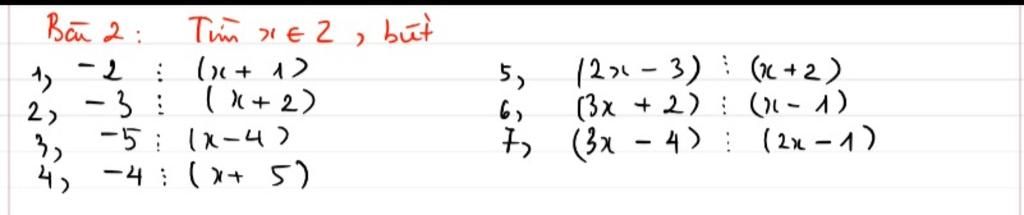 Bài 2: Tìm x ∈ Z, biết
1, -2 ⋮ (x + 1)
2, -3 ⋮ (x + 2)
3, -5 ⋮ (x - 4)
4, -4 ⋮ (x + 5)
5, (2x - 3) ⋮ (x + 2)
6, (3x + 2) ⋮ (x - 1)
7, (3x - 4) ⋮ (2x - 1)